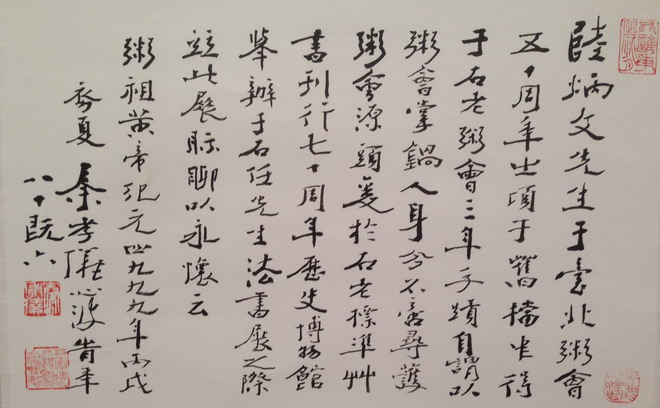 陸炳文先生于臺北粥會
五十周年出頃于舊檔中得
于右老粥會二三年手蹟自謂以
粥會掌鍋人身分不啻尋獲
粥會源頭爰於右老標準艸
書刊行七十周年歷史博物館
舉辦于右任先生法書展之際
玆此展眎聊以永懷云
粥祖黃帝紀元四九九九年丙戌
齊夏秦孝儀心波時年
八十既六